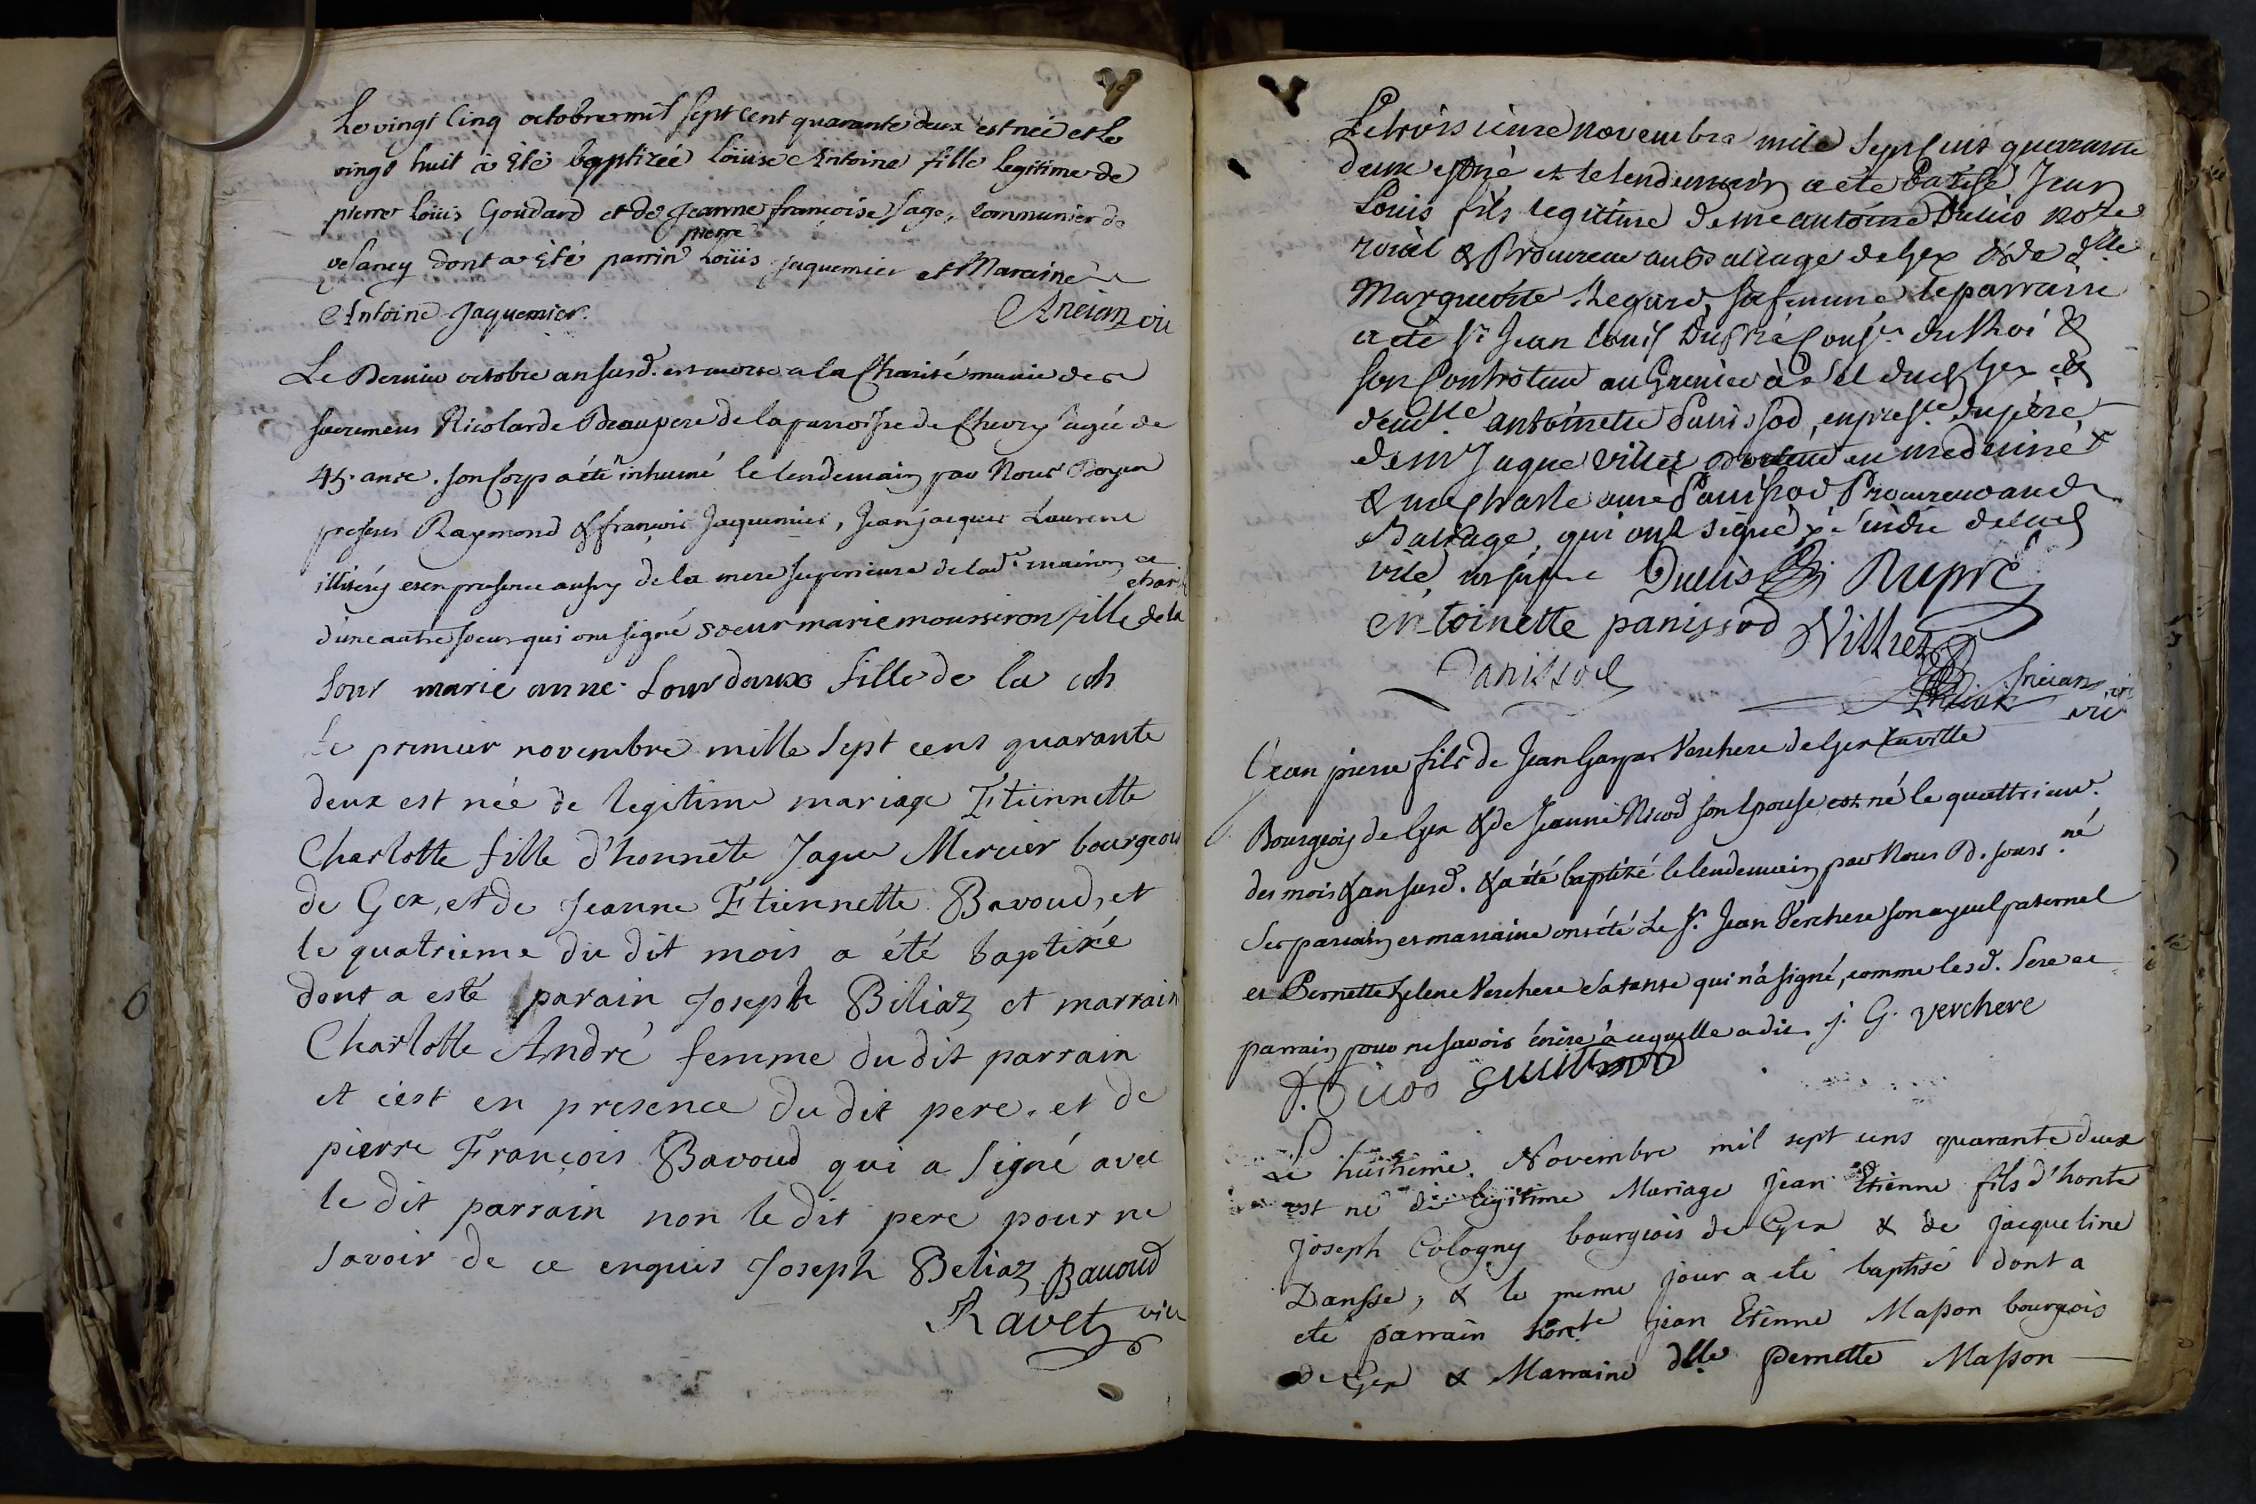 Le vingt cinq octobre mil sept cent quarante deux est née et le
vingt huit a été baptizée loüise Antoine fille legitime de
pierre loüis Goudard et de Jeanne françoise sage, communier de
vesancy dont a été parrin pierre loüis jaquemier et Maraine
Antoine jaquemier. Ancian vic
Le Dernier octobre an susd. est morte a la Charité munie des
sacremens Nicolarde Beaupere de la parroisse de Chevry agée de
45 ans. son Corp a été inhumé le lendemain par Nous Doyen
presens Raymond & françois Jaquemier, Jean jacques Laurent
illiterés et en presence aussy de la mere superieure de lad. maison et
d'une autre soeur qui ont signé soeur marie moursiron fille de la chari
sour marie anne Lourdaux fille de la ch
le premier novembre mille sept cens quarante
deux est née de legitime mariage Etiennette
Charlotte fille d'honnête Jaque Mercier bourgeois
de Gex, et de Jeanne Etiennette Bavoud, et
le quatrieme du dit mois a été baptizé
dont a esté parain Joseph Biliaz et marrain
Charlotte André femme du dit parrain
et c'est en presence du dit pere. et de
pierre François Bavoud qui a signé avec
le dit parrain non le dit pere pour ne
savoir de ce enquis Joseph Beliaz Bauoud
Ravet vic
Le troisieme novembre mile sept cent quarante
deux est né et le lendemain a ete Batisé Jean
Louis fils legitime de me antoine Duuis not.e
roial & Procureur au Bailiage de Gex & de d.lle
Marguerite Regard sa femme le parrain
a ete s.r Jean Louis Dupré Cons.r du Roi &
son Controleur au Grenier à sel de Gex et
dem.lle antoinette Panissod, en pres.ce du père
de m.r Jaque Villiet Docteur en medecine
& me Charle aimé Panissod Procureur au d.
Bailiage, qui ont signé
vile Duuis Dupré
entoinette panissod Villiet
Panissod
Ancian vic
Jean pierre fils de Jean Gaspar Verchere de Gex la ville
Bourgeois de Gex & de Jeanne Nicod son Epouse est né le quattrieme.
des mois & an susd. & a été baptizé le lendemain par Nous D. souss.né
Ses parrain et marraine ont été Le S.r Jean Verchere son ayeul paternel
et Pernette helene Verchere sa tante qui n'a signé, comme lesd. Pere et
parrain pour ne savoir écrire à ce quelle a dit. j. G. verchere
Le huitieme Novembre mil sept cens quarante deux
est né de legitime Mariage Jean Etienne fils d'hon.te
Joseph Cologny bourgeois de Gex & de jacqueline
Dansse, & le meme jour a eté baptisé dont a
eté parrain hon.te jean Etienne Masson bourgeois
de Gex & Marraine d.lle pernette Masson